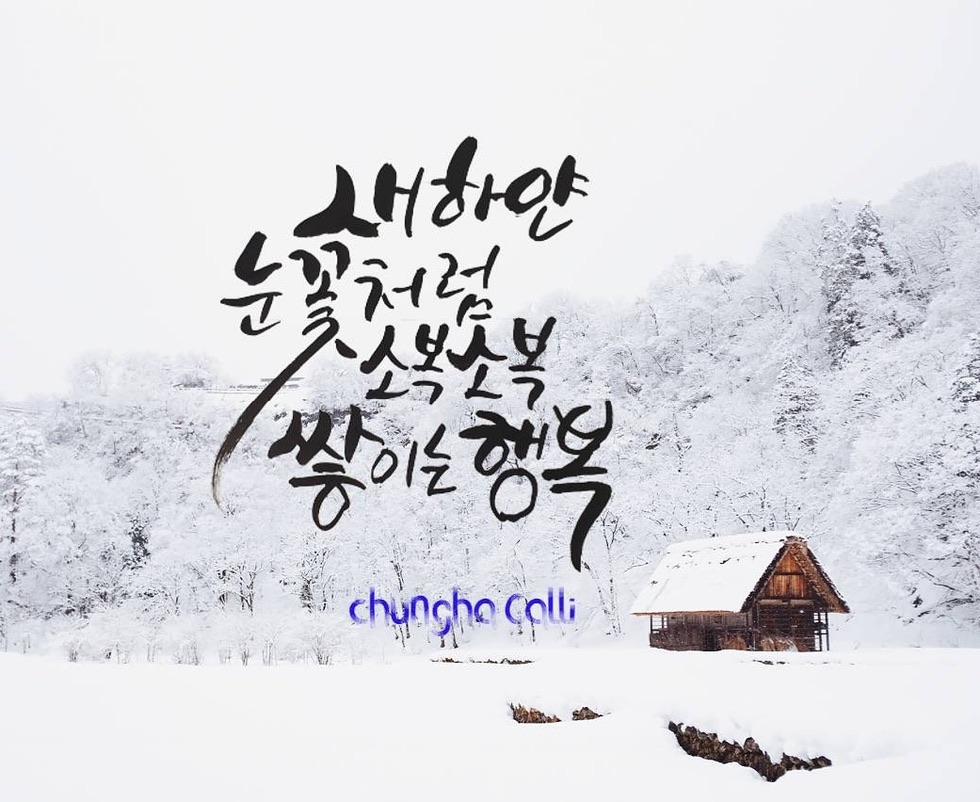 새하얀
눈꽃처럼
소복소복
쌓이는 행복
chungha calli